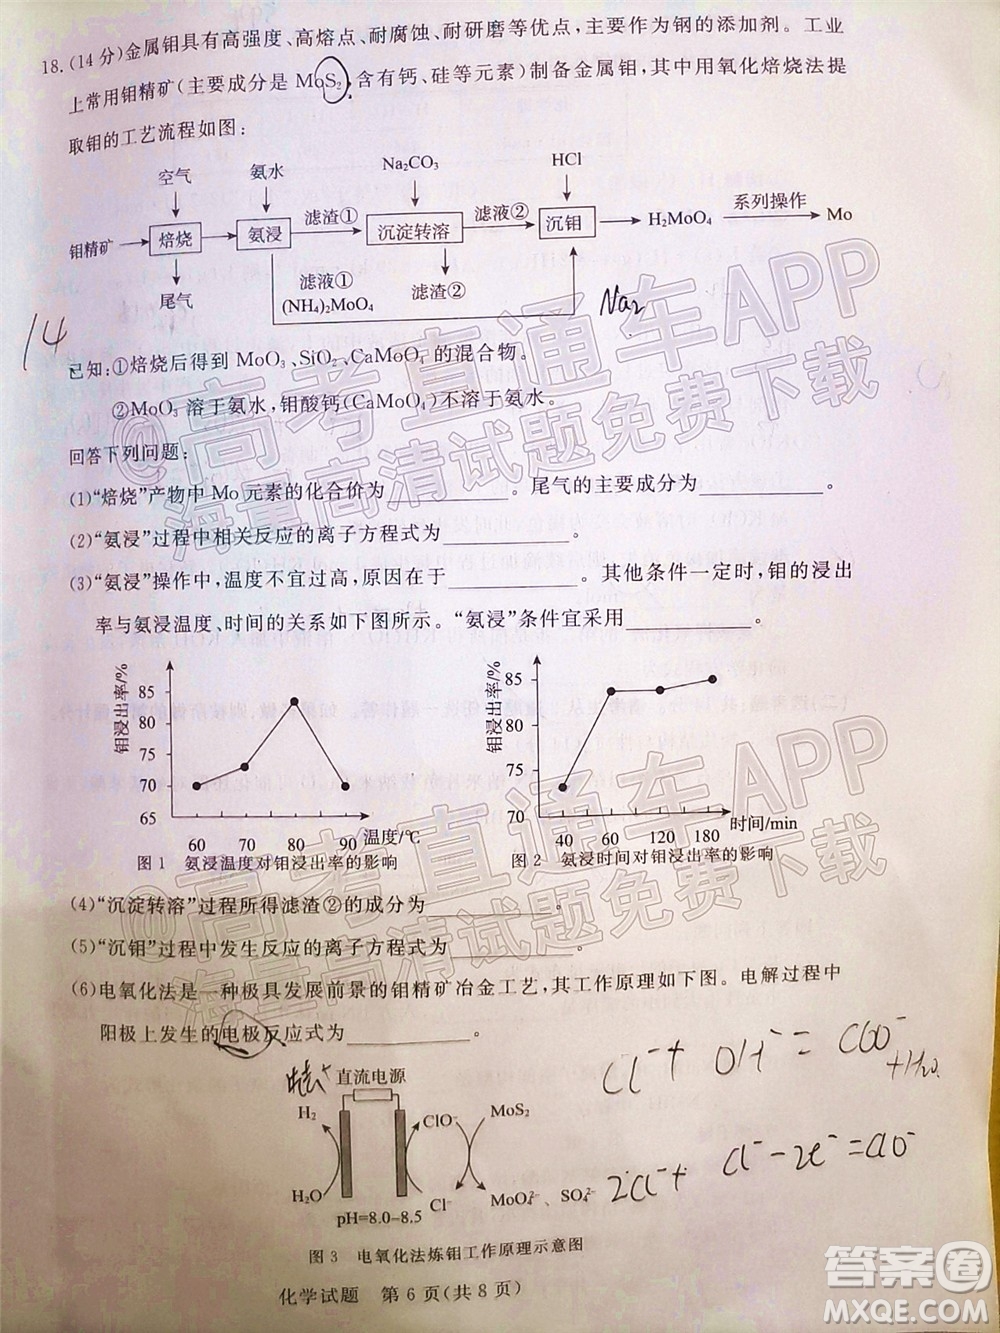 18.(14分)金属钼具有高强度、高熔点、耐腐蚀、耐研磨等优点,主要作为钢的添加剂。工业
上常用钼精矿(主要成分是 MoS₂,含有钙、硅等元素)制备金属钼,其中用氧化焙烧法提
取钼的工艺流程如图:
空气 氨水 Na₂CO₃ HCl
钼精矿 焙烧 氨浸 滤渣① 沉淀转溶 滤液② 沉钼 H₂MoO₄ 系列操作 Mo
尾气 滤液① (NH₄)₂MoO₄ 滤渣②
Na₂
14
已知:①焙烧后得到 MoO₃、SiO₂、CaMoO₄ 的混合物。
②MoO₃ 溶于氨水,钼酸钙(CaMoO₄)不溶于氨水。
回答下列问题:
(1)“焙烧”产物中 Mo 元素的化合价为________。尾气的主要成分为________。
(2)“氨浸”过程中相关反应的离子方程式为________。
(3)“氨浸”操作中,温度不宜过高,原因在于________。其他条件一定时,钼的浸出
率与氨浸温度、时间的关系如下图所示。“氨浸”条件宜采用________。
钼浸出率/%
85
80
75
70
65
60 70 80 90 温度/℃
图 1 氨浸温度对钼浸出率的影响
钼浸出率/%
85
80
75
70
40 60 120 180 时间/min
图 2 氨浸时间对钼浸出率的影响
(4)“沉淀转溶”过程所得滤渣②的成分为________。
(5)“沉钼”过程中发生反应的离子方程式为________。
(6)电氧化法是一种极具发展前景的钼精矿冶金工艺,其工作原理如下图。电解过程中
阳极上发生的电极反应式为________。
直流电源
H₂ ClO⁻ MoS₂
H₂O Cl⁻ MoO₄²⁻、SO₄²⁻
pH=8.0-8.5
Cl⁻ + OH⁻ = ClO⁻
+H₂O
2Cl⁻+ Cl⁻-2e⁻=ClO⁻
图 3 电氧化法炼钼工作原理示意图
化学试题 第 6 页(共 8 页)
@高考直通车APP
海量高清试题免费下载
@高考直通车APP
海量高清试题免费下载
答案圈
MXQE.COM